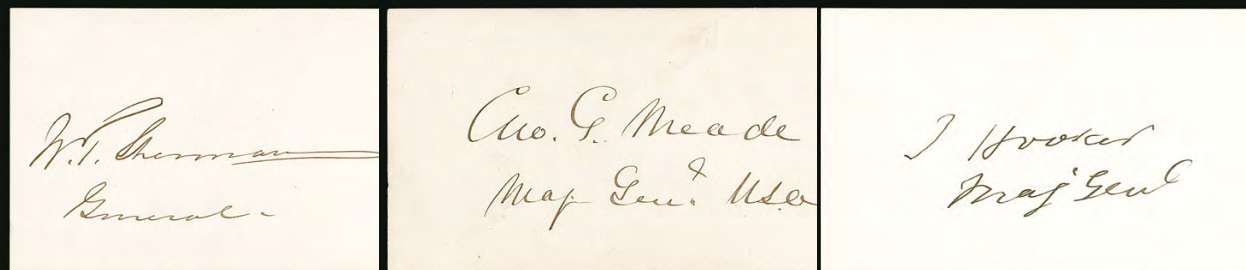 W.T. Sherman
General
Geo. G. Meade
Maj. Genl. USA
J Hooker
Maj Genl